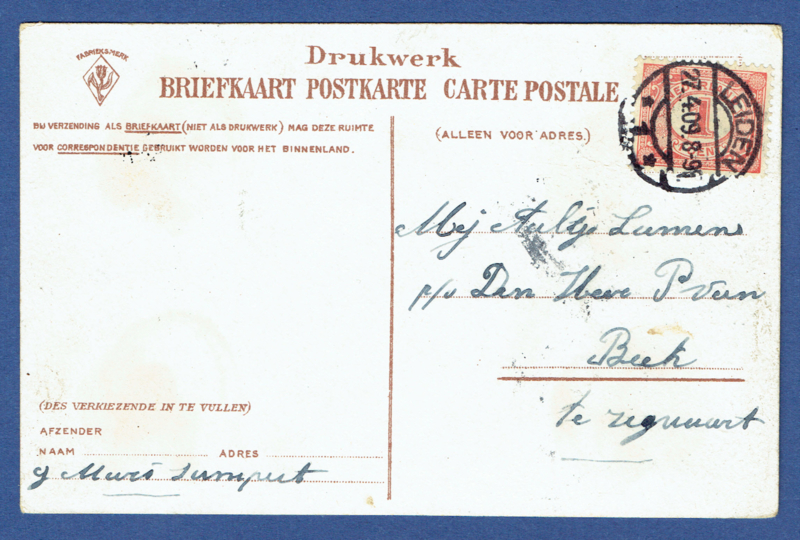 FABRIEKSMERK
Drukwerk
BRIEFKAART POSTKARTE CARTE POSTALE
BIJ VERZENDING ALS BRIEFKAART (NIET ALS DRUKWERK) MAG DEZE RUIMTE
VOOR CORRESPONDENTIE GEBRUIKT WORDEN VOOR HET BINNENLAND.
(ALLEEN VOOR ADRES.)
LEIDEN
27.4.09.8-9
1
Mej Aaltje Lumens
p/a Den Heer P Veen
Beek
te Zegwaart
(DES VERKIEZENDE IN TE VULLEN)
AFZENDER
NAAM ADRES